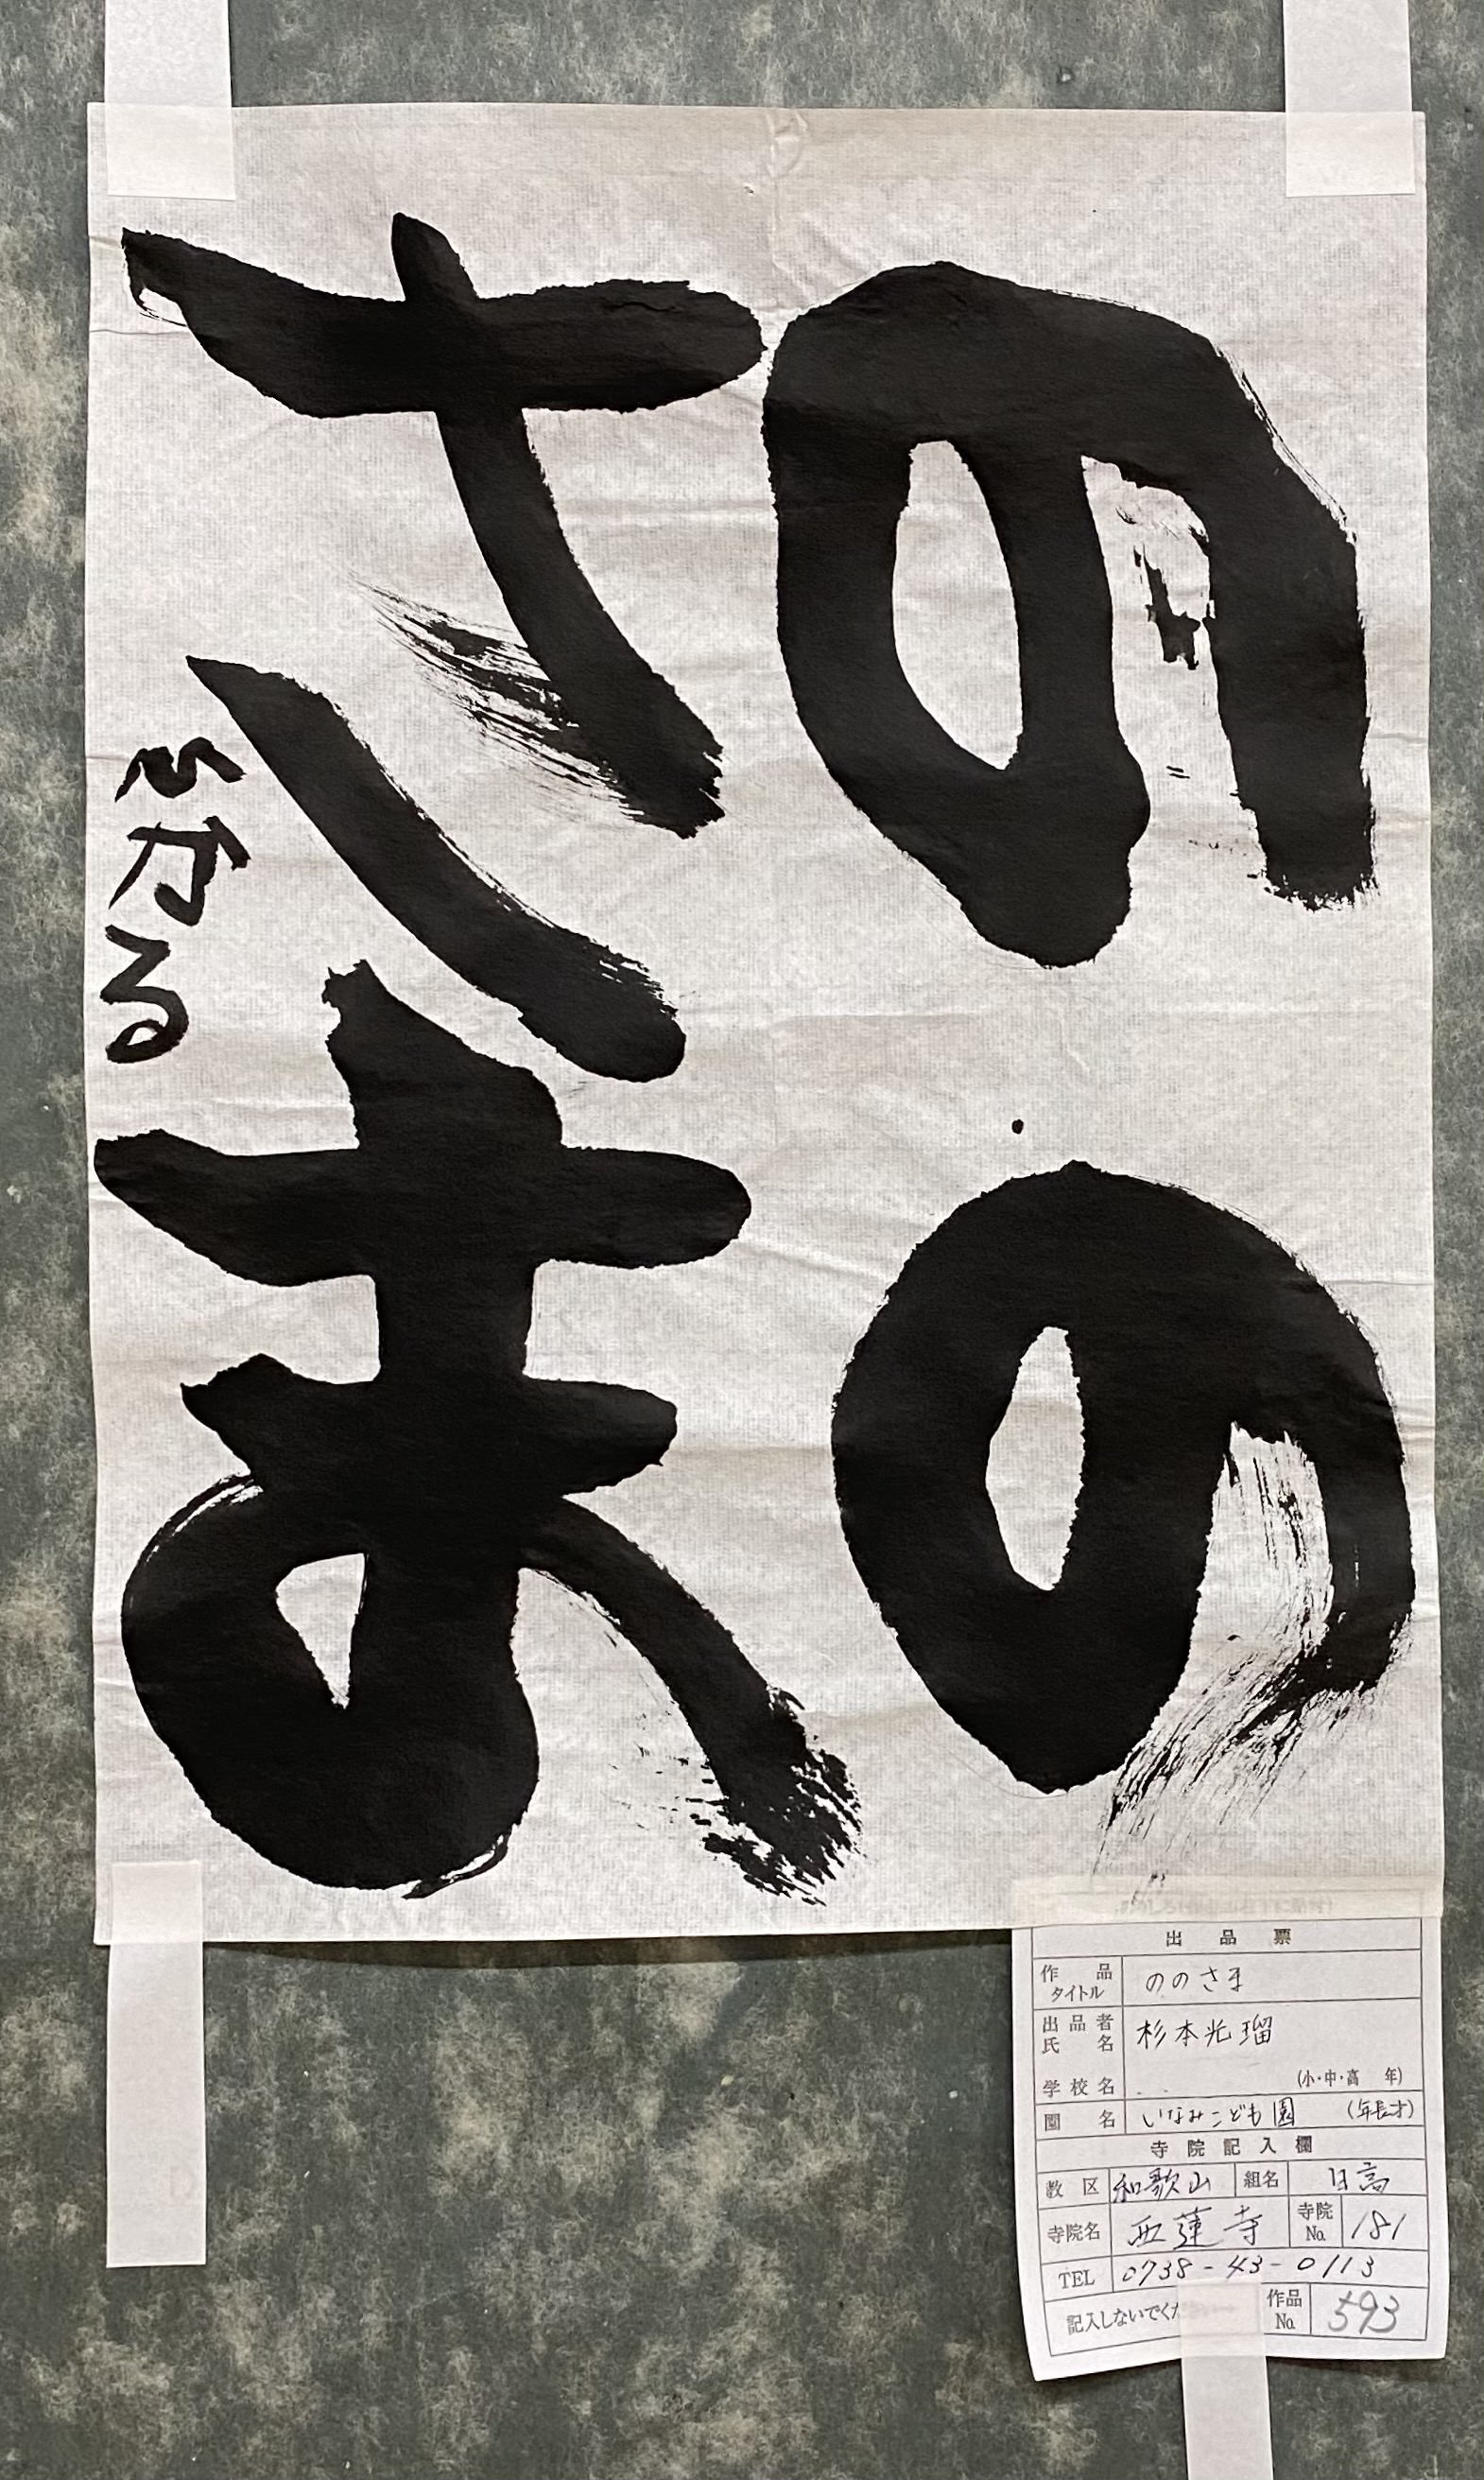 のの
さま
ひかる
出品票
作品タイトル ののさま
出品者氏名 杉本光瑠
学校名 (小・中・高 年)
園名 いなみこども園 (年長才)
寺院記入欄
教区 和歌山 組名 日高
寺院名 西蓮寺 寺院No. 181
TEL 0738-43-0113
記入しないでくだ 作品No. 593